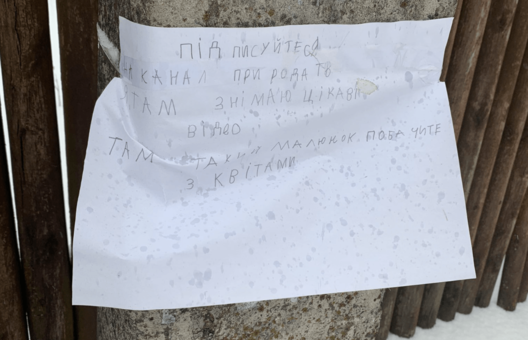 ПІДПИСУЙТЕСЬ
НА КАНАЛ ПРИРОДАТЬ
ТАМ ЗНІМАЮ ЦІКАВІ
ВІДЕО
ТАМ МАЛЮНОК ПОБАЧИТЕ
З КВІТАМИ